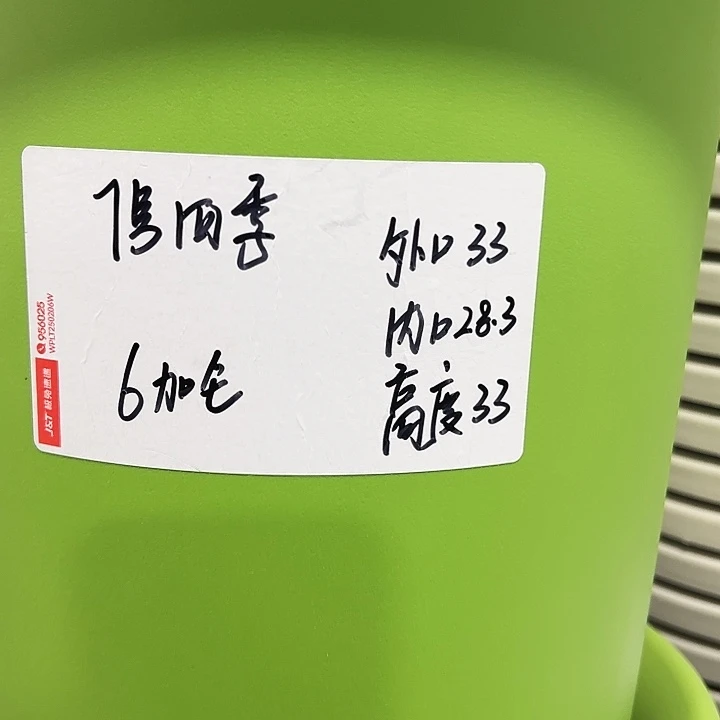 7号四季
6加仑
外口33
内口28.3
高度33
956025
WPLT250206W
J&T 极兔速递